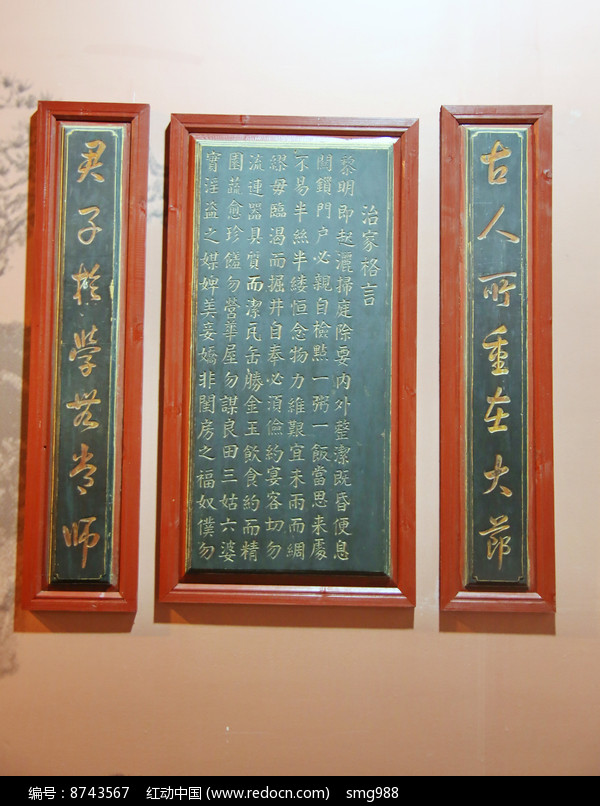 古人所重在大節
治家格言
黎明即起灑掃庭除要內外整潔既昏便息
關鎖門户必親自檢點一粥一飯當思來處
不易半絲半縷恒念物力維艱宜未雨而綢
繆毋臨渴而掘井自奉必須儉約宴客切勿
流連器具質而潔瓦缶勝金玉飲食約而精
園蔬愈珍饈勿營華屋勿謀良田三姑六婆
實淫盗之媒婢美妾嬌非閨房之福奴僕勿
君子於學無常師
编号：8743567 红动中国 (www.redocn.com) smg988